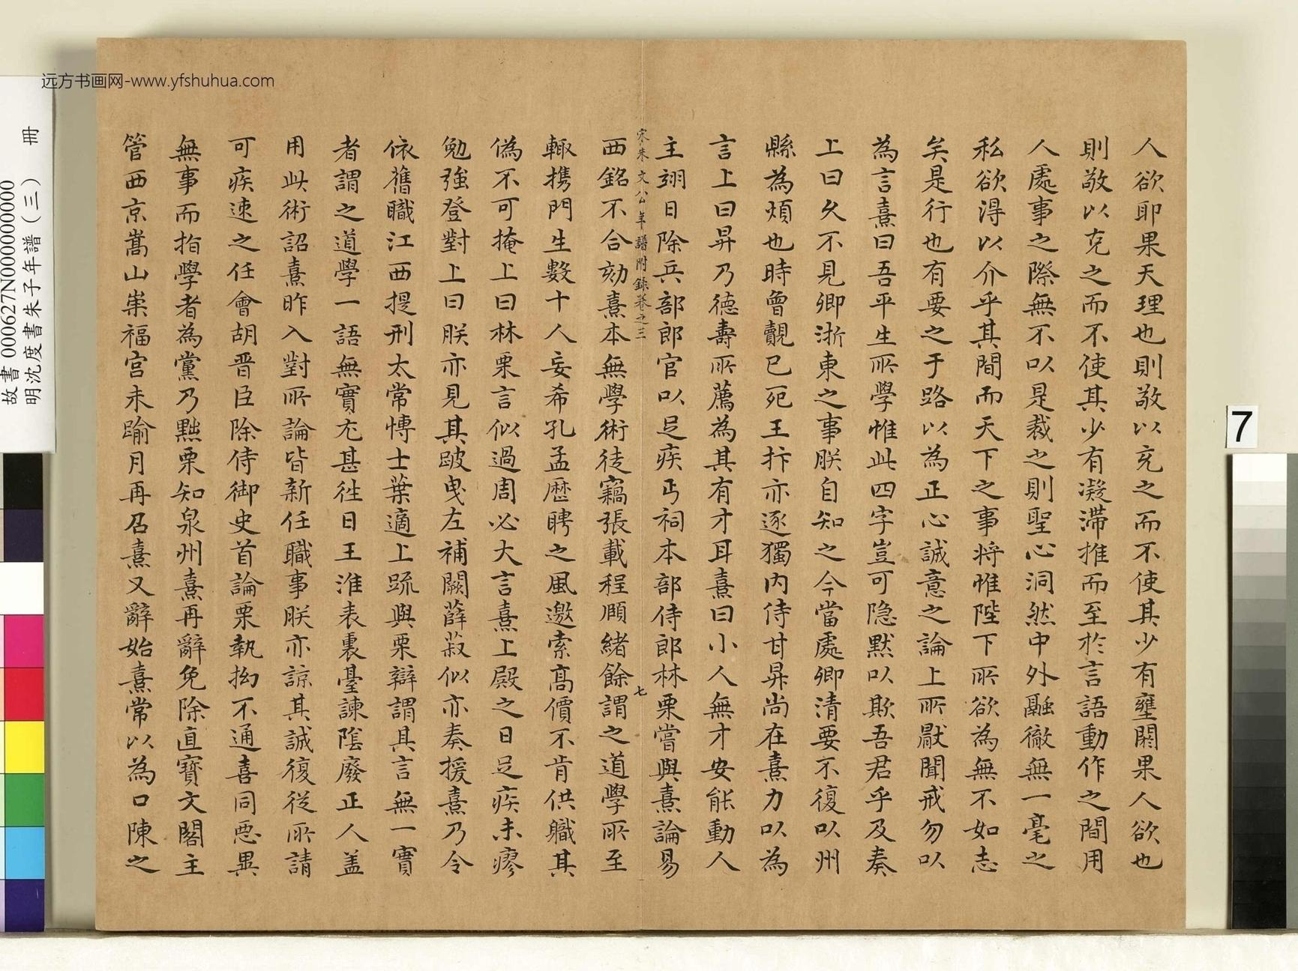 远方书画网-www.yfshuhua.com
故書000627N000000000
明沈度書朱子年譜(三) 冊
7
人欲耶果天理也則敬以充之而不使其少有壅閼果人欲也
則敬以克之而不使其少有凝滯推而至於言語動作之間用
人處事之際無不以是裁之則聖心洞然中外融徹無一毫之
私欲得以介乎其間而天下之事将惟陛下所欲為無不如志
矣是行也有要之于路以為正心誠意之論上所厭聞戒勿以
為言熹曰吾平生所學惟此四字豈可隐默以欺吾君乎及奏
上曰久不見卿浙東之事朕自知之今當處卿清要不復以州
縣為煩也時曾覿已死王抃亦逐獨内侍甘昇尚在熹力以為
言上曰昇乃德壽所薦為其有才耳熹曰小人無才安能動人
主翊日除兵部郎官以足疾丐祠本部侍郎林栗嘗與熹論易
宋朱文公年譜附錄卷之三
七
西銘不合劾熹本無學術徒竊張載程頤緒餘謂之道學所至
輙携門生數十人妄希孔孟歷聘之風邀索髙價不肯供職其
偽不可掩上曰林栗言似過周必大言熹上殿之日足疾未瘳
勉強登對上曰朕亦見其跛曳左補闕薛叔似亦奏援熹乃令
依舊職江西提刑太常愽士葉適上疏與栗辯謂其言無一實
者謂之道學一語無實尤甚徃日王淮表裏臺諫隂廢正人盖
用此術詔熹昨入對所論皆新任職事朕亦諒其誠復從所請
可疾速之任會胡晋臣除侍御史首論栗執拗不通喜同惡異
無事而指學者為黨乃黜栗知泉州熹再辭免除直寶文閣主
管西京嵩山崇福宫未踰月再召熹又辭始熹常以為口陳之